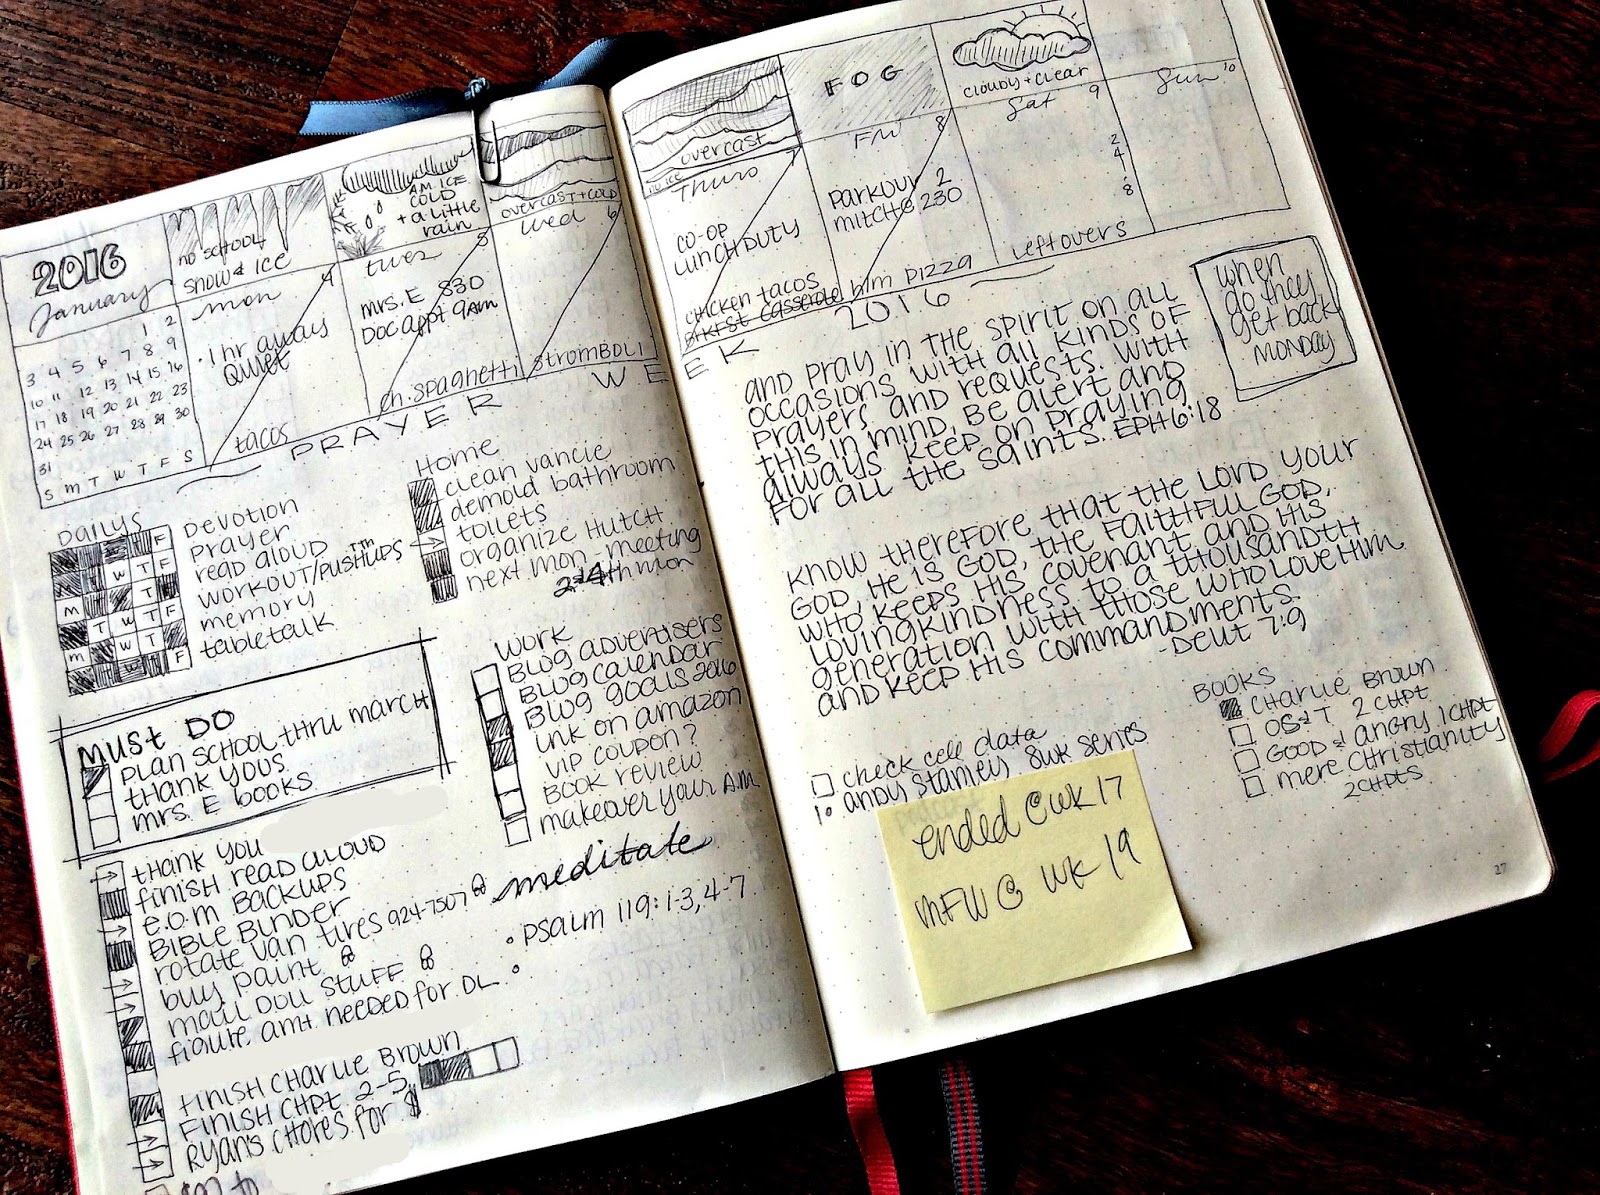 2016
January
1 2
3 4 5 6 7 8 9
10 11 12 13 14 15 16
17 18 19 20 21 22 23
24 25 26 27 28 29 30
31
S M T W T F S
NO SCHOOL
SNOW & ICE
mon 4
• 1 hr always
QUIET
tacos
A.M. ICE
COLD
+ a little
rain
tues 5
MRS. E 830
DOC APPT 9AM
ch. spaghetti
overcast + cold
wed 6
STROMBOLI
overcast
NO ICE
Thurs 7
CO-OP
LUNCH DUTY
CHICKEN TACOS
BRKFST CASSEROLE
FOG
Fri 8
PARKOUR 2
MITCH@ 230
h/m PIZZA
cloudy + clear
Sat 9
2
4
8
leftovers
Sun 10
PRAYER WEEK 2016
DAILYS
F
W T F
M T
T W T F
M W T
W F
Devotion
Prayer
read aloud
WORKOUT/PUSHUPS T TH
memory
tabletalk
Home
clean vancie
demold bathroom
toilets
organize HUTCH
next mon. meeting
2nd 4th mon
MUST DO
PLAN SCHOOL thru march
THANK YOUS
mrs. E books
work
BLOG advertisers
BLOG calendar
BLOG goals 2016
ink on amazon
VIP COUPON?
BOOK review
makeover your A.M.
THANK YOU
FINISH READ ALOUD
e.o.m BACKUPS
BIBLE BINDER
rotate van tires 924-7507
buy paint
mail DOLL STUFF
figure amt. needed for DL
FINISH CHARLIE BROWN
FINISH CHPT 2-5
RYAN'S CHORES for $
meditate
• Psalm 119: 1-3, 4-7
•
when
do they
get back
MONDAY
AND PRAY IN THE SPIRIT ON ALL
OCCASIONS WITH ALL KINDS OF
PRAYERS AND REQUESTS. WITH
THIS IN MIND, BE ALERT AND
ALWAYS KEEP ON PRAYING
FOR ALL THE SAINTS. EPH 6:18
KNOW THEREFORE THAT THE LORD YOUR
GOD, HE IS GOD, THE FAITHFUL GOD,
WHO KEEPS HIS COVENANT AND HIS
LOVINGKINDNESS TO A THOUSANDTH
GENERATION WITH THOSE WHO LOVE HIM
AND KEEP HIS COMMANDMENTS.
-Deut 7:9
check cell data
andy stanley 8wk series
ended @ wk 17
MFW @ wk 19
BOOKS
CHARLIE BROWN
OS&T 2 CHPT
GOOD & angry 1 CHPT
mere Christianity
2 CHPTS
27